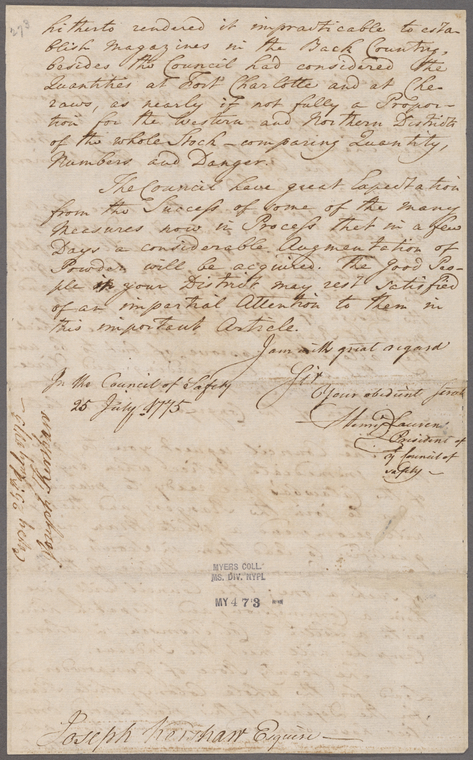 hitherto rendered it impracticable to esta-
blish Magazines in the Back Country,
besides the Council had considered the
Quantities at Fort Charlotte and at Che-
raws, as nearly if not fully a Propor-
tion for the Western and Northern Districts
of the whole Stock - comparing Quantity,
Numbers and Danger.
The Council have great Expectation
from the Success of some of the many
Measures now in Process that in a few
Days a considerable Augmentation of
Powder will be acquired. The Good Peo-
ple in your District may rest satisfied
of an impartial Attention to them in
this important Article.
I am with great regard
Sir
Your obedient Servt
Henry Laurens
President of
ye Council of
Safety
In the Council of Safety
25 July 1775
Joseph Kershaw
MYERS COLL.
MS. DIV. NYPL
MY 473
Joseph Kershaw Esquire